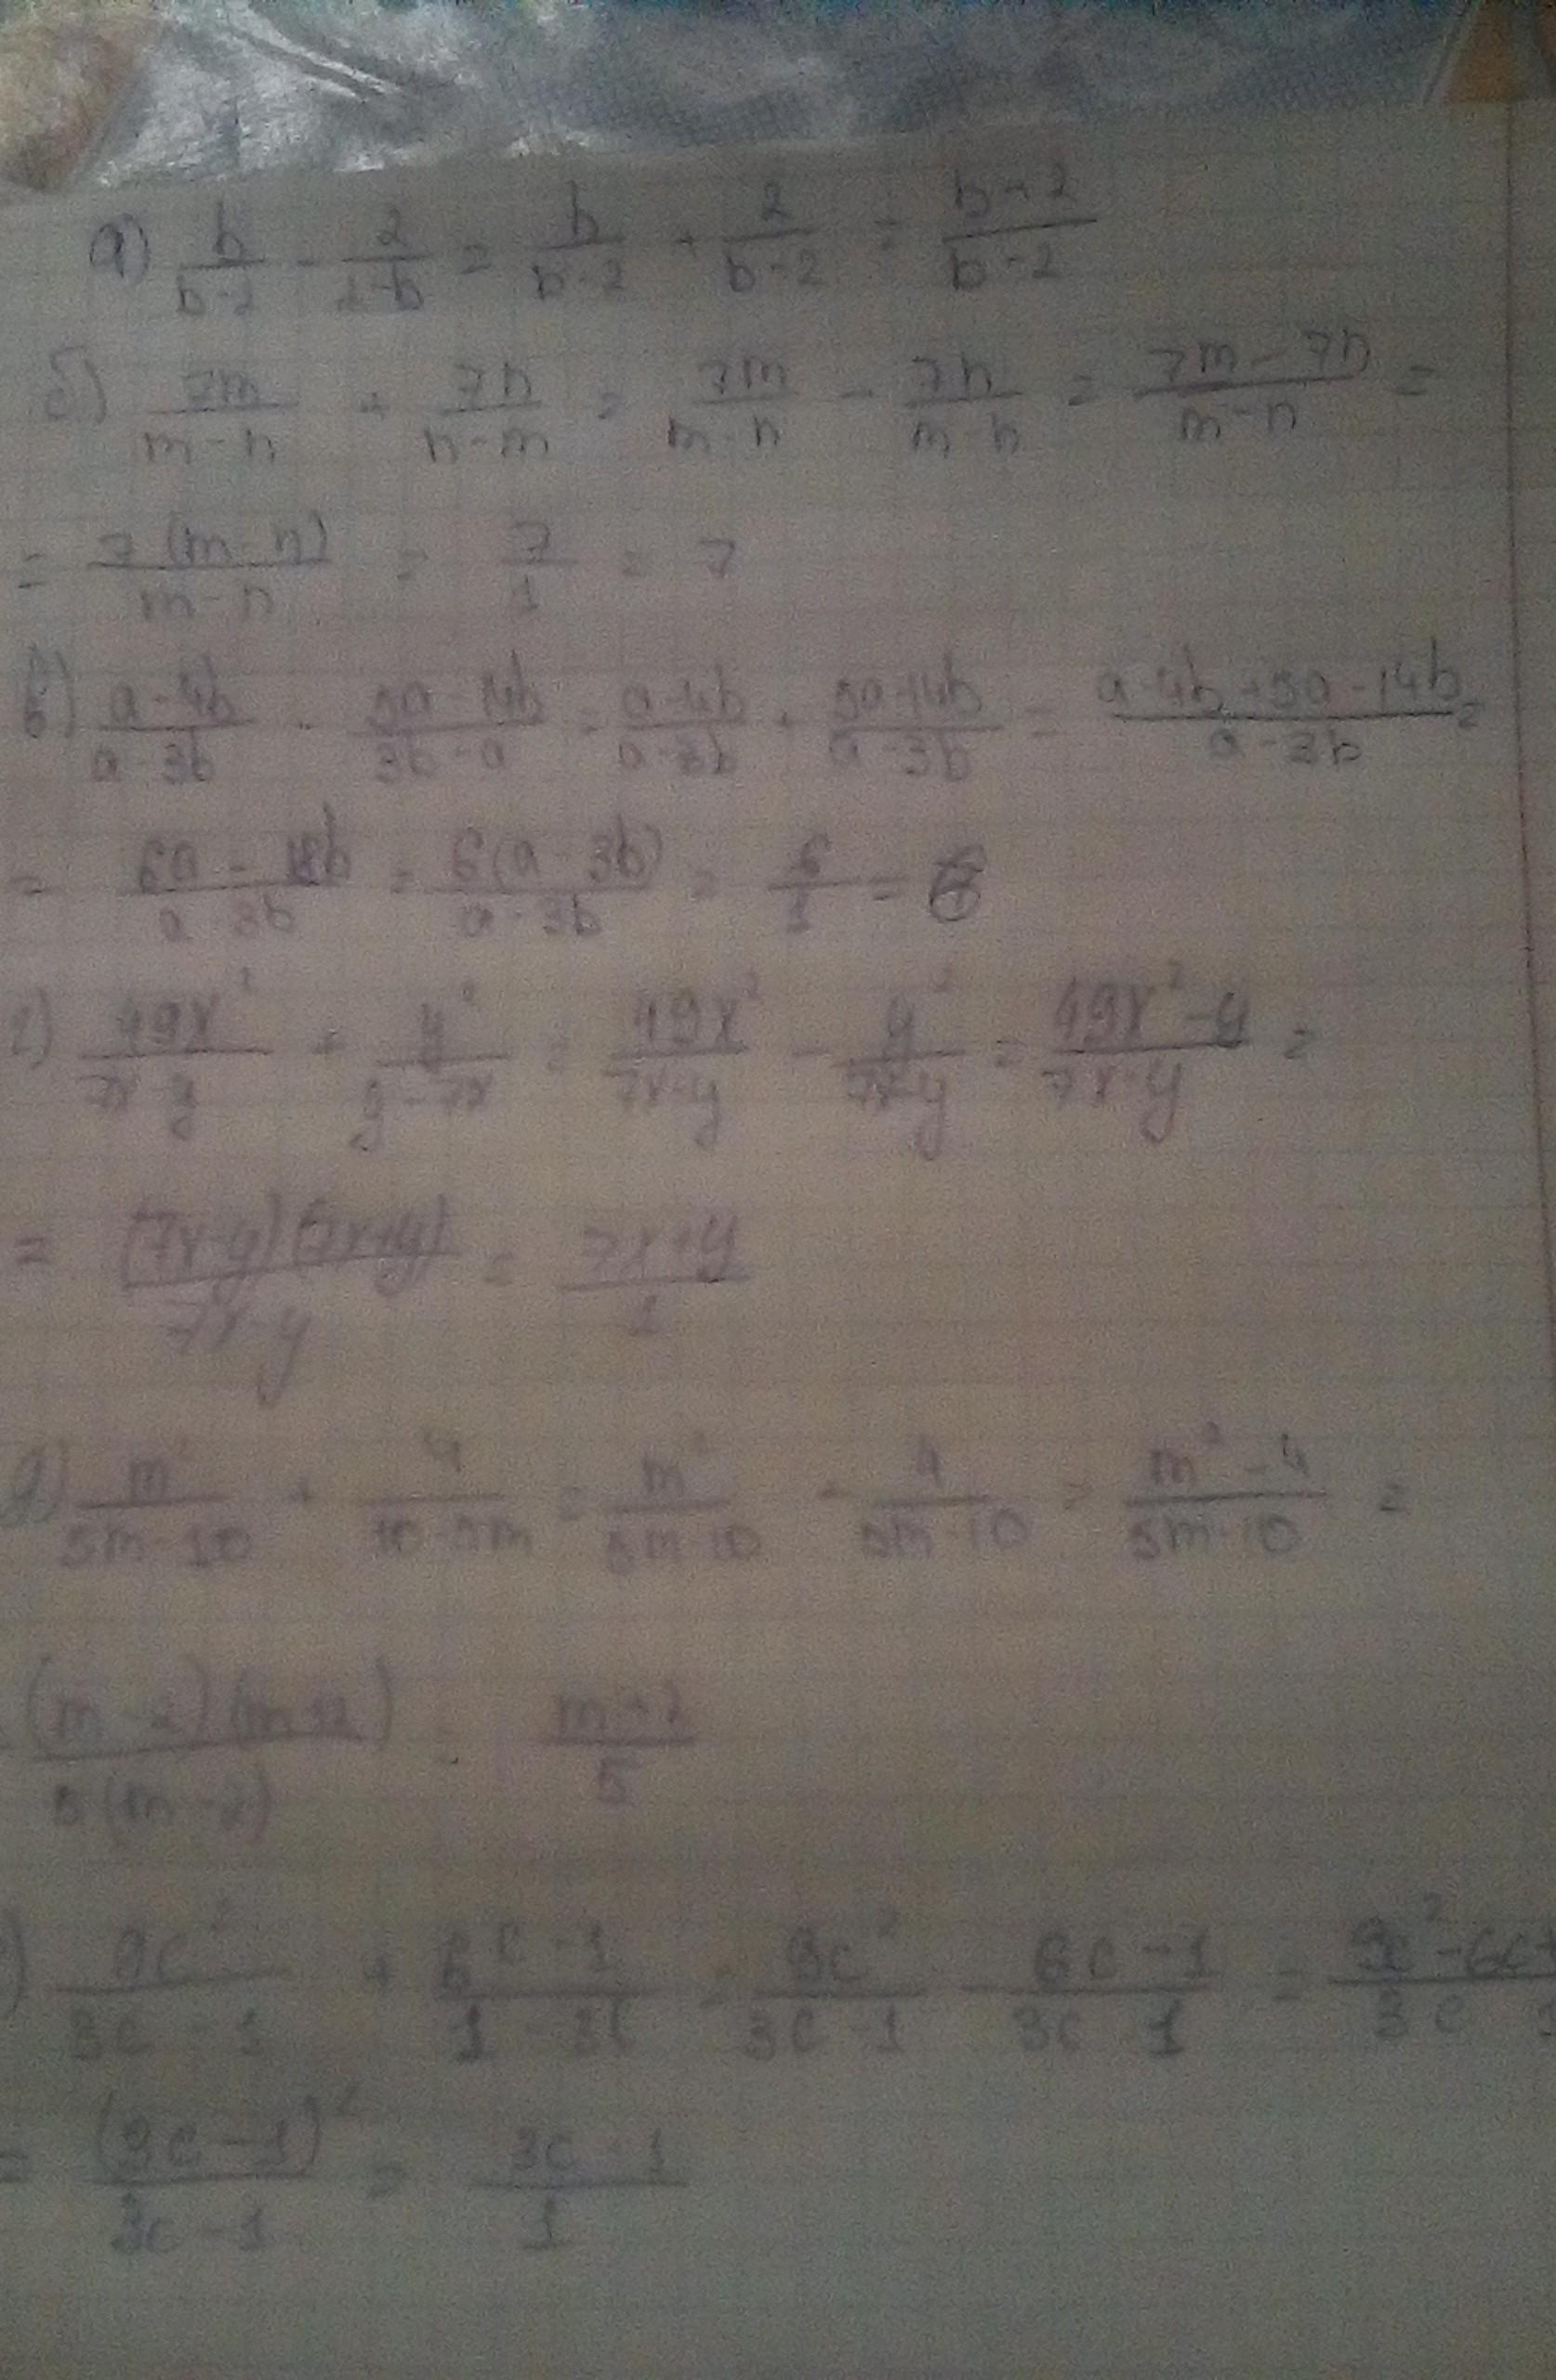 а) b/(b-2) - 2/(2-b) = b/(b-2) + 2/(b-2) = (b+2)/(b-2)
б) 7m/(m-n) + 7n/(n-m) = 7m/(m-n) - 7n/(m-n) = (7m-7n)/(m-n) =
= 7(m-n)/(m-n) = 7/1 = 7
в) (a-4b)/(a-3b) - (5a-14b)/(3b-a) = (a-4b)/(a-3b) + (5a-14b)/(a-3b) = (a-4b+5a-14b)/(a-3b) =
= (6a-18b)/(a-3b) = 6(a-3b)/(a-3b) = 6/1 = 6
г) 49x²/(7x-y) + y²/(y-7x) = 49x²/(7x-y) - y²/(7x-y) = (49x²-y)/(7x-y) =
= (7x-y)(7x+y)/(7x-y) = (7x+y)/1
д) m²/(5m-10) + 4/(10-5m) = m²/(5m-10) - 4/(5m-10) = (m²-4)/(5m-10) =
(m-2)(m+2)/5(m-2) = (m+2)/5
) 9c²/(3c-1) + (6c-1)/(1-3c) = 9c²/(3c-1) - (6c-1)/(3c-1) = (9c²-6c+)/(3c-1)
= (3c-1)²/(3c-1) = (3c-1)/1